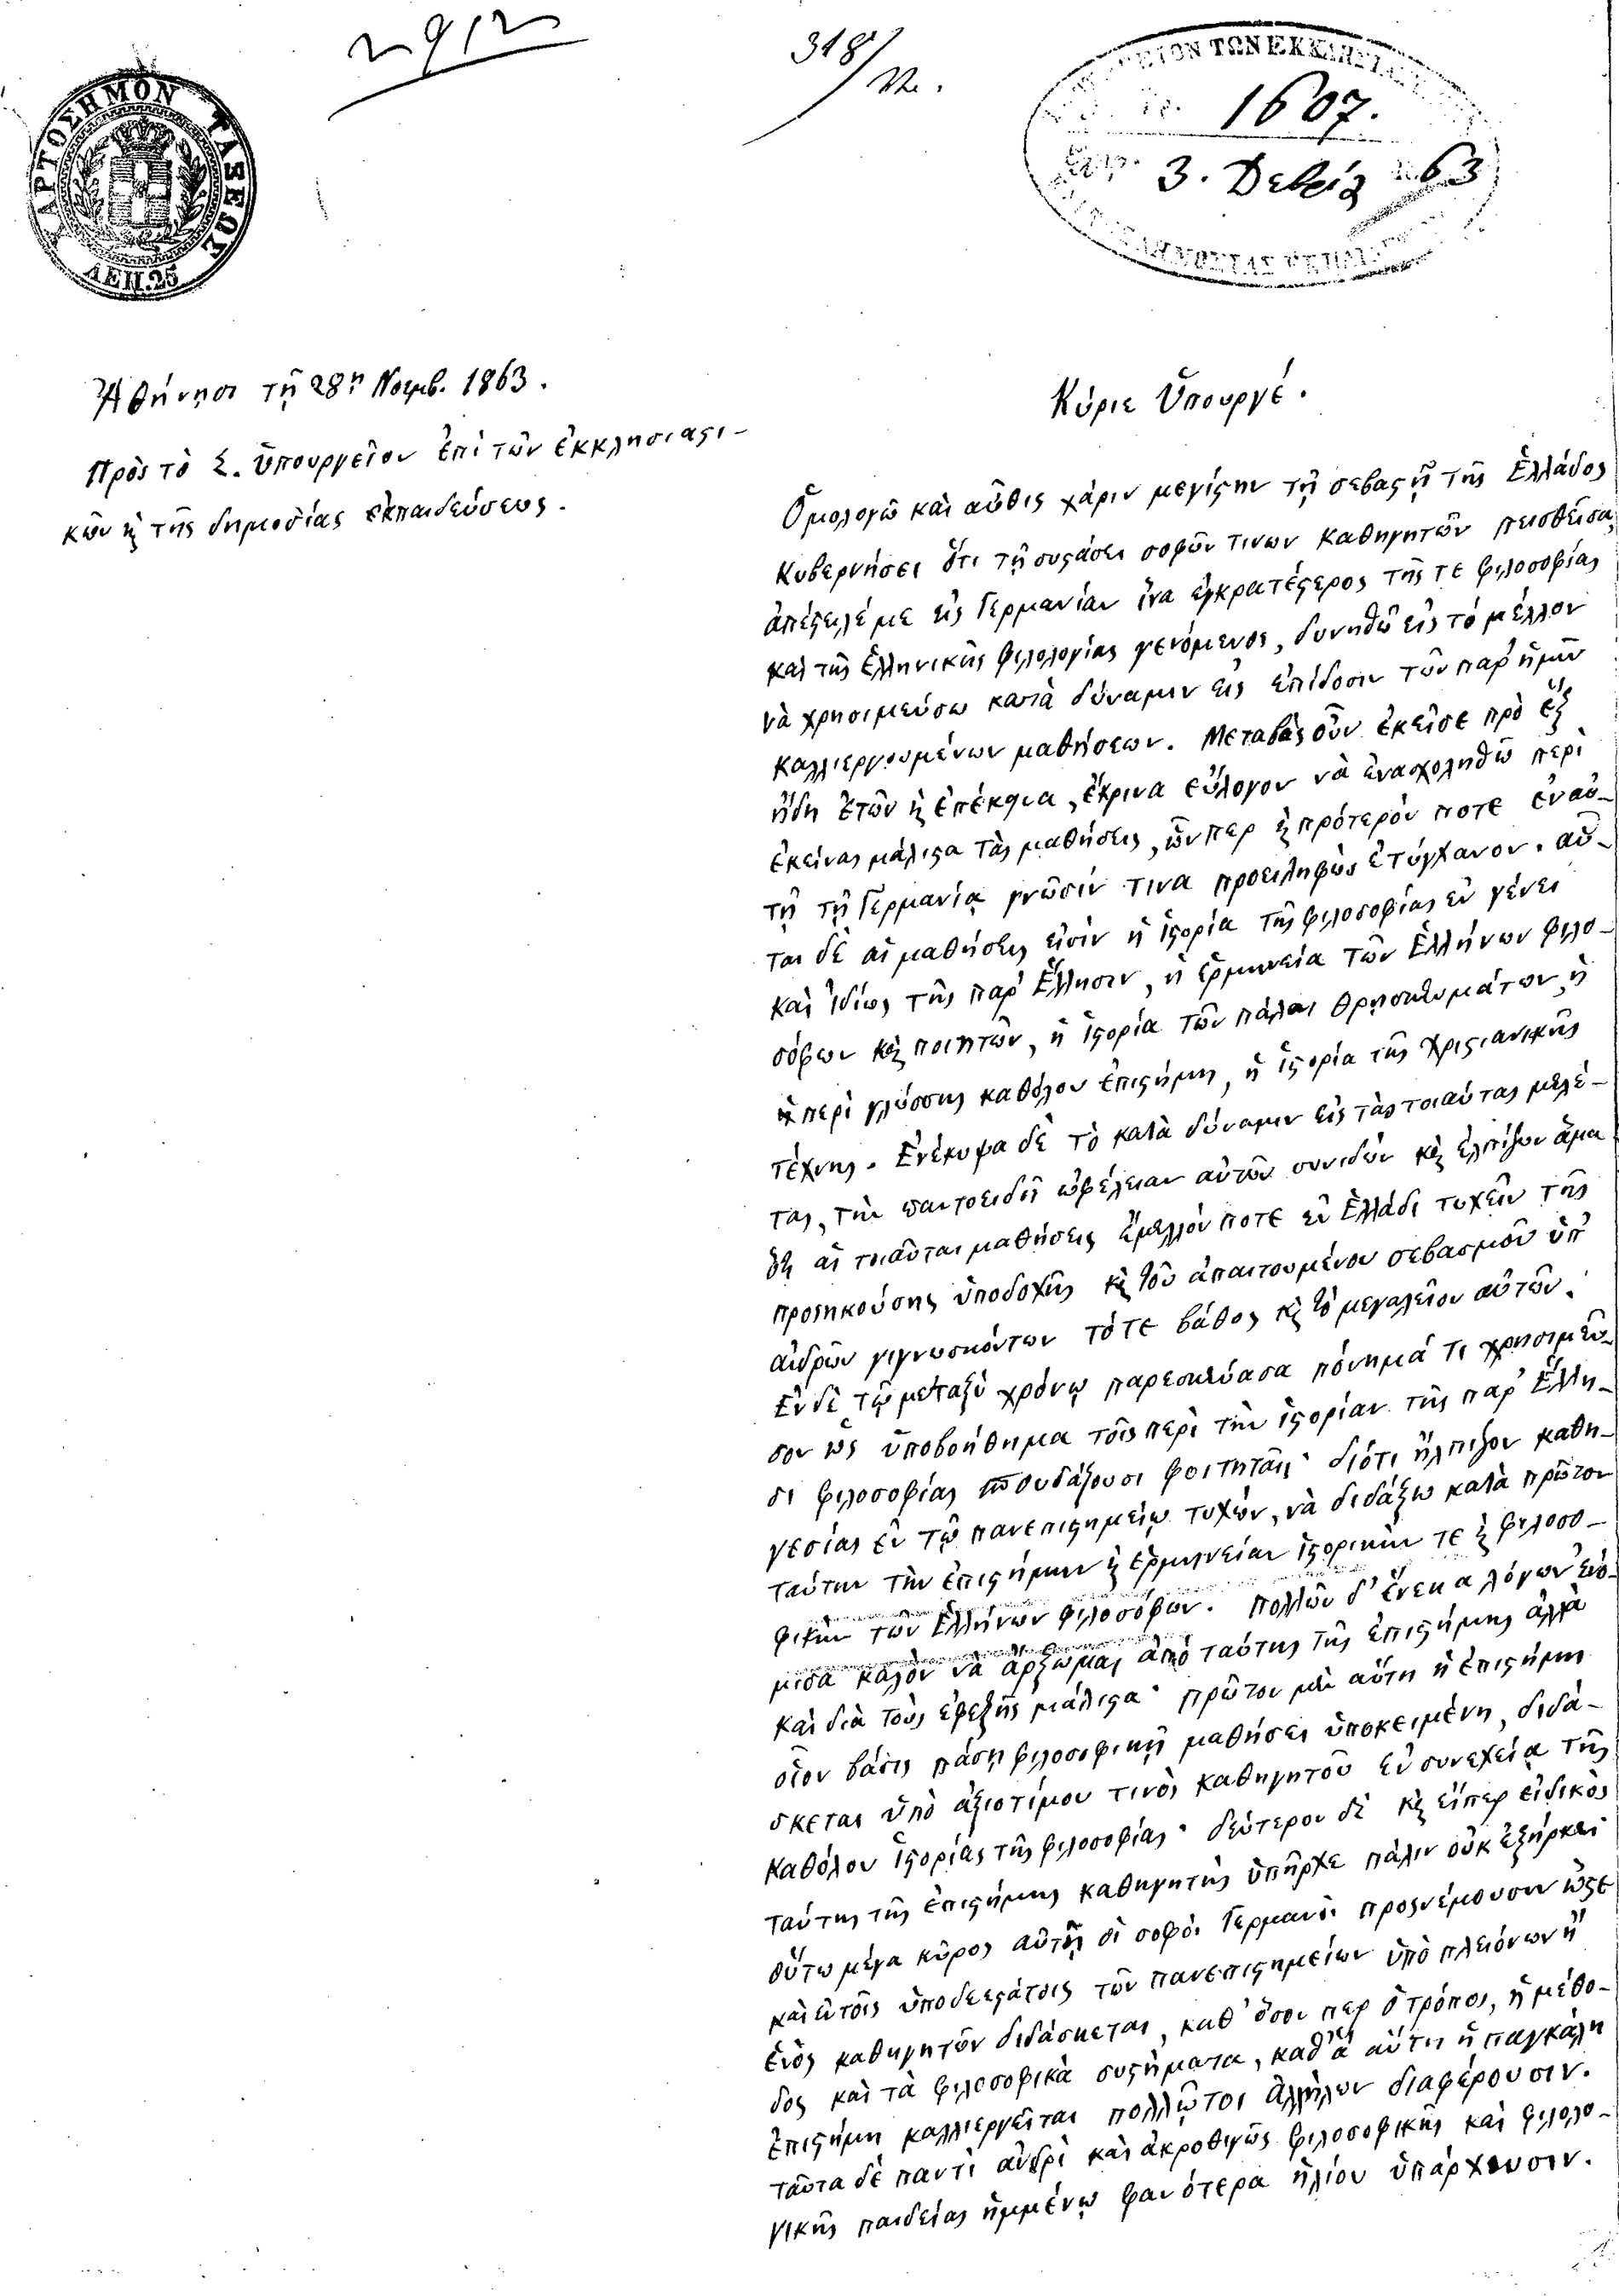 2912
318/
ΧΑΡΤΟΣΗΜΟΝ ΤΑΞΕΩΣ
ΛΕΠ. 25
ΤΩΝ ΕΚΚΛΗΣΙΑΣ
1607.
3. Δεκρίου 63
ΔΗΜΟΣΙΑΣ ΕΚΠΑΙΔΕΥ
Ἀθήνησι τῇ 28ῃ Νοεμβ. 1863.
Πρὸς τὸ Σ. Ὑπουργεῖον ἐπὶ τῶν ἐκκλησιαστι-
κῶν κ̀ τῆς δημοσίας ἐκπαιδεύσεως.
Κύριε Ὑπουργέ.
Ὁμολογῶ καὶ αὖθις χάριν μεγίστην τῇ σεβαστῇ τῆς Ἑλλάδος
Κυβερνήσει ὅτι τῇ συστάσει σοφῶν τινων καθηγητῶν πεισθεῖσα
ἀπέστειλέ με εἰς Γερμανίαν ἵνα ἐγκρατέστερος τῆς τε φιλοσοφίας
καὶ τῆς ἑλληνικῆς φιλολογίας γενόμενος, δυνηθῶ εἰς τὸ μέλλον
νὰ χρησιμεύσω κατὰ δύναμιν εἰς ἐπίδοσιν τῶν παρ' ἡμῖν
καλλιεργουμένων μαθήσεων. Μεταβὰς οὖν ἐκεῖσε πρὸ ἓξ
ἤδη ἐτῶν κ̀ ἐπέκεινα, ἔκρινα εὔλογον νὰ ἐνασχοληθῶ περὶ
ἐκείνας μάλιστα τὰς μαθήσεις, ὧνπερ κ̀ πρότερόν ποτε ἐν αὐ-
τῇ τῇ Γερμανίᾳ γνῶσίν τινα προειληφὼς ἐτύγχανον. αὗ-
ται δὲ αἱ μαθήσεις εἰσὶν ἡ ἱστορία τῆς φιλοσοφίας ἐν γένει
καὶ ἰδίως τῆς παρ' Ἕλλησιν, ἡ ἑρμηνεία τῶν Ἑλλήνων φιλο-
σόφων κ̀ ποιητῶν, ἡ ἱστορία τῶν πάλαι θρησκευμάτων, ἡ
περὶ γλώσσης καθόλου ἐπιστήμη, ἡ ἱστορία τῆς χριστιανικῆς
τέχνης. Ἐνέκυψα δὲ τὸ κατὰ δύναμιν εἰς τὰς τοιαύτας μελέ-
τας, τὴν παντοειδῆ ὠφέλειαν αὐτῶν συνιδὼν κ̀ ἐλπίζων ἅμα
ὅτι αἱ τοιαῦται μαθήσεις ἔμελλόν ποτε ἐν Ἑλλάδι τυχεῖν τῆς
προσηκούσης ὑποδοχῆς κ̀ τοῦ ἀπαιτουμένου σεβασμοῦ ὑπ'
ἀνδρῶν γιγνωσκόντων τό τε βάθος κ̀ τὸ μεγαλεῖον αὐτῶν.
Ἐν δὲ τῷ μεταξὺ χρόνῳ παρεσκεύασα πόνημά τι χρησιμεῦ-
σον ὡς ὑποβοήθημα τοῖς περὶ τὴν ἱστορίαν τῆς παρ' Ἕλλη-
σι φιλοσοφίας σπουδάζουσι φοιτηταῖς· διότι ἤλπιζον καθη-
γεσίας ἐν τῷ πανεπιστημείῳ τυχών, νὰ διδάξω κατὰ πρῶτον
ταύτην τὴν ἐπιστήμην κ̀ ἑρμηνείαν ἱστορικήν τε κ̀ φιλοσο-
φικὴν τῶν Ἑλλήνων φιλοσόφων. πολλῶν δ' ἕνεκα λόγων ἐνό-
μισα καλὸν νὰ ἄρξωμαι ἀπὸ ταύτης τῆς ἐπιστήμης ἀλλὰ
καὶ διὰ τοὺς ἐφεξῆς μάλιστα· πρῶτον μὲν αὕτη ἡ ἐπιστήμη
οἷον βάσις πάσῃ φιλοσοφικῇ μαθήσει ὑποκειμένη, διδά-
σκεται ὑπὸ ἀξιοτίμου τινὸς καθηγητοῦ ἐν συνεχείᾳ τῆς
καθόλου ἱστορίας τῆς φιλοσοφίας· δεύτερον δὲ κ̀ εἴπερ εἰδικὸς
ταύτης τῆς ἐπιστήμης καθηγητὴς ὑπῆρχε πάλιν οὐκ ἐξήρκει
οὕτω μέγα κῦρος αὐτῇ οἱ σοφοὶ Γερμανοὶ προσνέμουσιν ὥστε
καὶ ἐν τοῖς ὑποδεεστάτοις τῶν πανεπιστημείων ὑπὸ πλειόνων ἢ
ἑνὸς καθηγητῶν διδάσκεται, καθ' ὅσον περ ὁ τρόπος, ἡ μέθο-
δος καὶ τὰ φιλοσοφικὰ συστήματα, καθ' ἃ αὕτη ἡ παγκάλη
ἐπιστήμη καλλιεργεῖται πολλῷ τοι ἀλλήλων διαφέρουσιν.
ταῦτα δὲ παντὶ ἀνδρὶ καὶ ἀκροθιγῶς φιλοσοφικῆς καὶ φιλολο-
γικῆς παιδείας ἡμμένῳ φανότερα ἡλίου ὑπάρχουσιν.